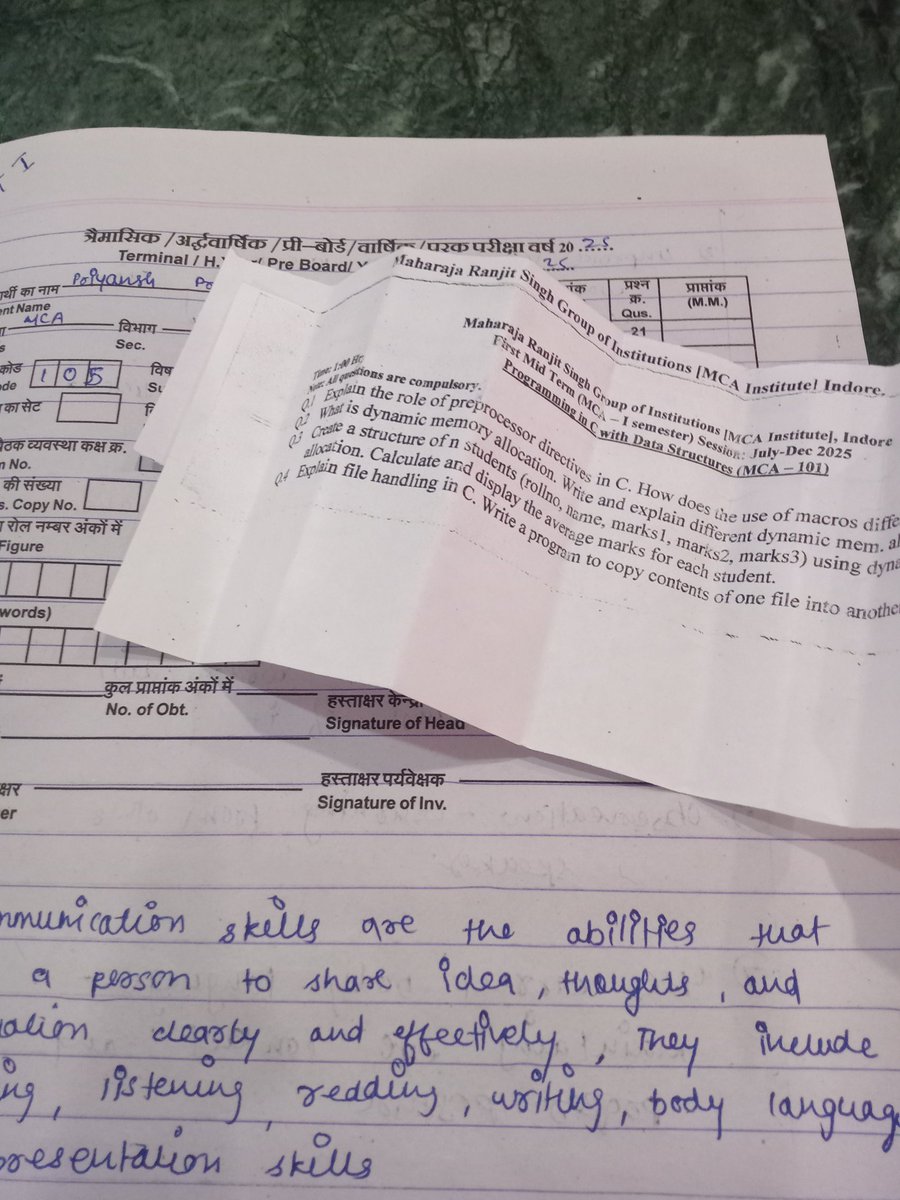 त्रैमासिक /अर्द्धवार्षिक /प्री–बोर्ड/वार्षिक/परक परीक्षा वर्ष 20 .25.
Terminal / H. Pre Board/ 25.
र्थी का नाम Polyansh
nt Name
MCA विभाग
Sec.
कोड 1 0 5
ode
का सेट
प्रश्न क्र. Qus. प्राप्तांक (M.M.)
21
Maharaja Ranjit Singh Group of Institutions [MCA Institute] Indore.
Maharaja Ranjit Singh Group of Institutions [MCA Institute], Indore
First Mid Term (MCA – I semester) Session: July-Dec 2025
Programming in C with Data Structures (MCA – 101)
Time: 1:00 Hr.
Note: All questions are compulsory.
Q.1 Explain the role of preprocessor directives in C. How does the use of macros diffe
Q.2 What is dynamic memory allocation. Write and explain different dynamic mem. al
Q.3 Create a structure of n students (rollno, name, marks1, marks2, marks3) using dyna
allocation. Calculate and display the average marks for each student.
Q.4 Explain file handling in C. Write a program to copy contents of one file into another
बैठक व्यवस्था कक्ष क्र.
n No.
की संख्या
s. Copy No.
रोल नम्बर अंकों में
Figure
words)
कुल प्राप्तांक अंकों में
No. of Obt.
हस्ताक्षर
Signature of Head
हस्ताक्षर पर्यवेक्षक
Signature of Inv.
mmunication skills are the abilities that
a person to share idea, thoughts, and
ation clearly and effectively, They include
ng, listening, reading, writing, body languag
presentation skills